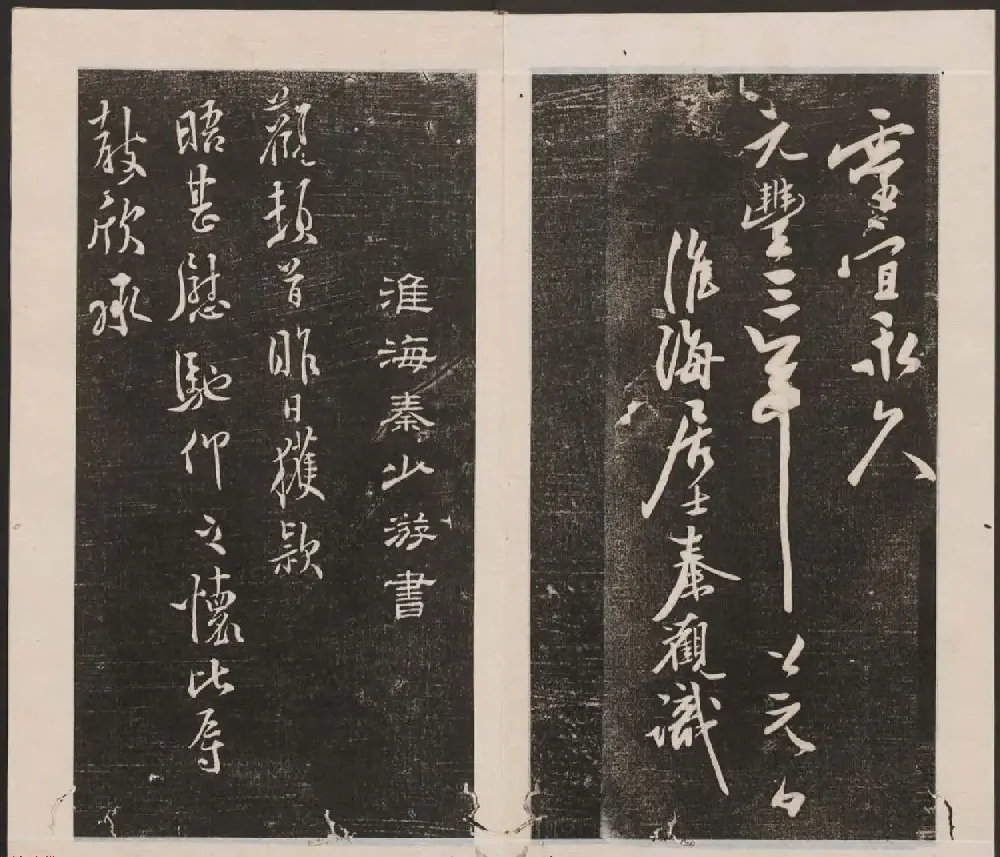 靈宜永久
元豐三年上元日
淮海居士秦觀識
淮海秦少游書
觀頓首昨日獲款
晤甚慰馳仰之懷比辱
教欣承